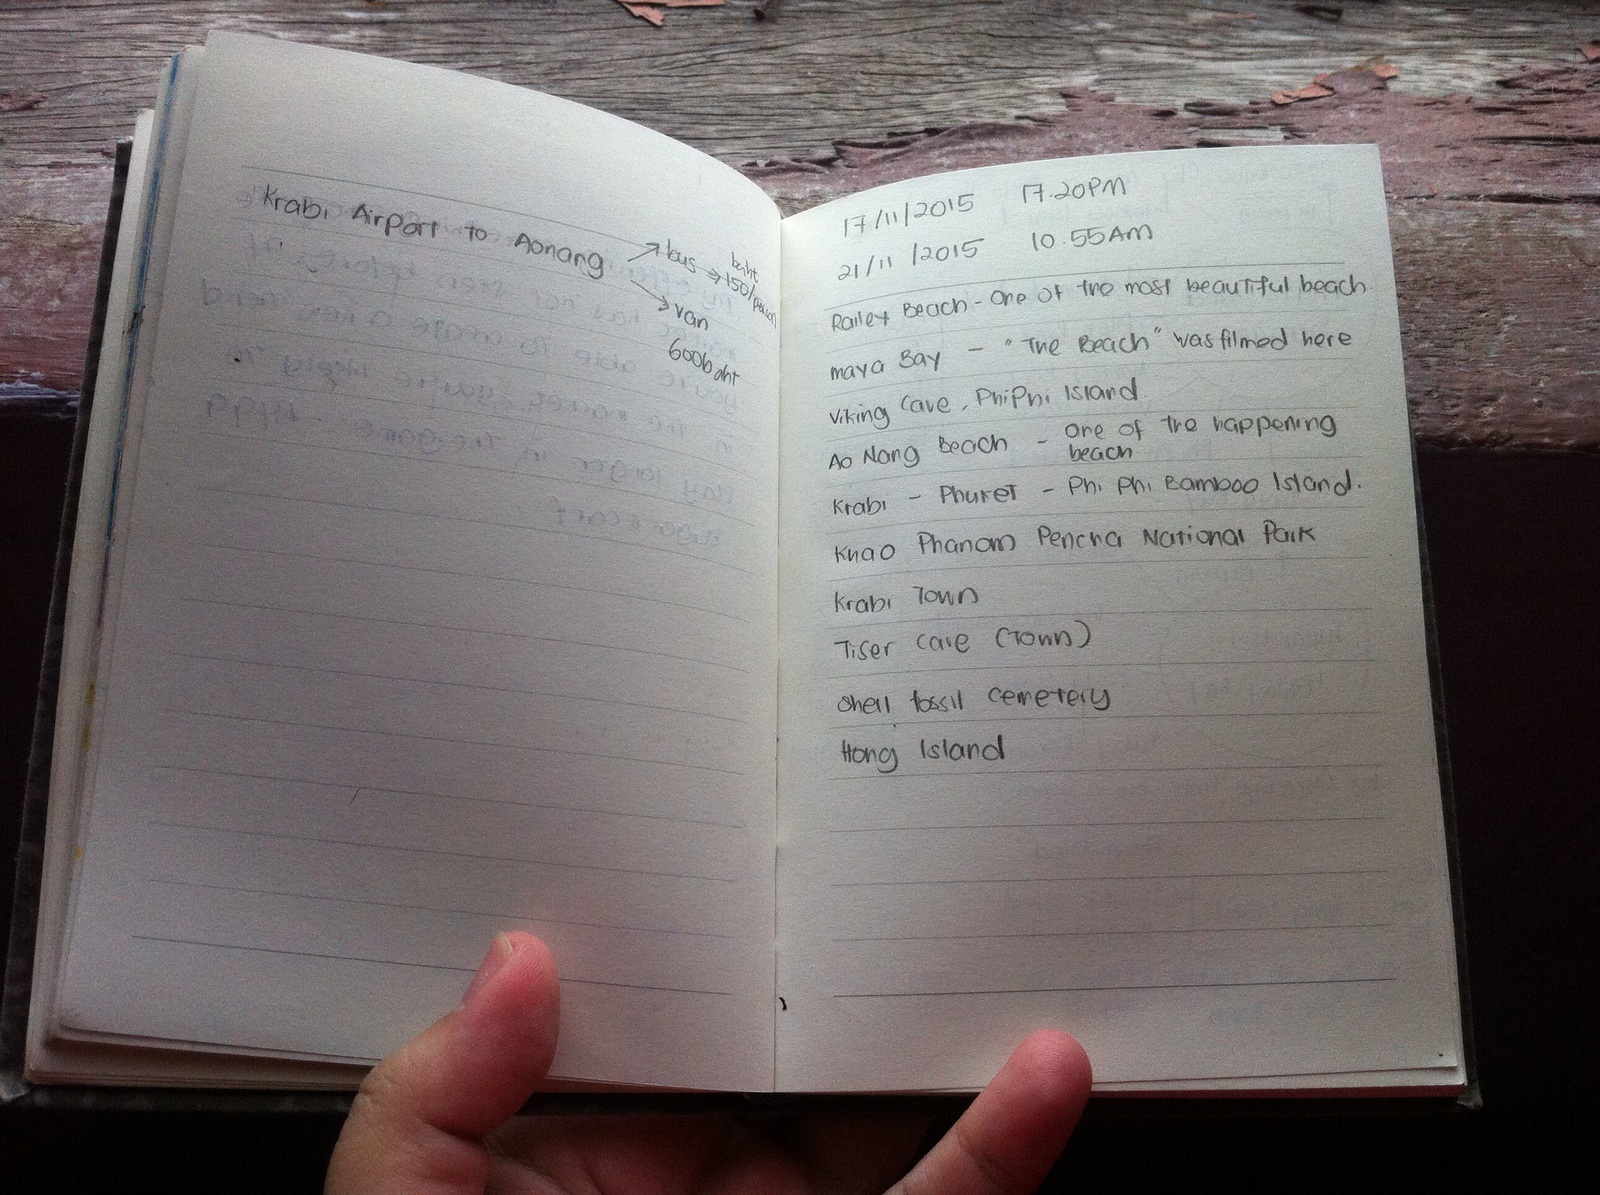 Krabi Airport to Aonang
bus
baht
150/person
van
600baht
17/11/2015 17.20PM
21/11/2015 10.55AM
Railey Beach - One of the most beautiful beach.
Maya Bay - "The Beach" was filmed here
Viking Cave, PhiPhi Island
Ao Nang Beach - One of the happening
beach
Krabi - Phuket - Phi Phi Bamboo Island.
Khao Phanom Pencha National Park
Krabi Town
Tiger Cave (Town)
Shell fossil cemetery
Hong Island